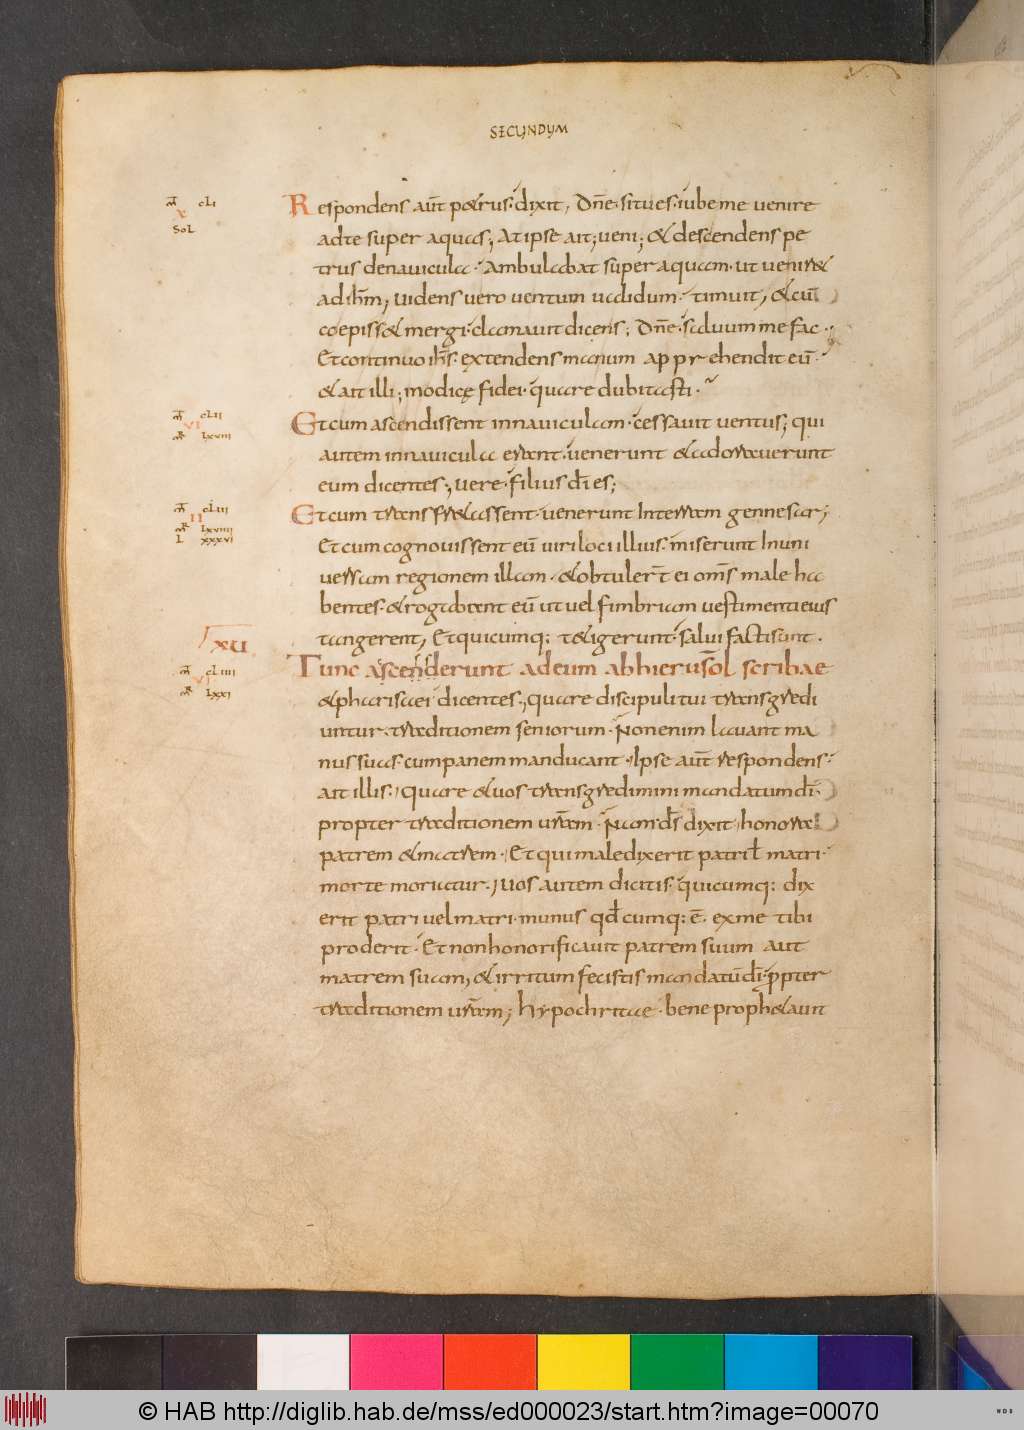 SECUNDUM
m̄ cLi
x
SOL
Respondens aut̄ petrus. dixit, Dn̄e. si tu es. iube me venire
ad te super aquas; At ipse ait; veni; & descendens pe
trus de navicula. Ambulabat super aquam. ut venir&
ad ih̄m; videns vero ventum validum. timuit, & cū
coepiss& mergi. clamavit dicens; Dn̄e. salvum me fac.;
Et continuo ih̄s. extendens manum apprehendit eū.
& ait illi; modicę fidei. quare dubitasti.
m̄ cLii
vi
mr̄ Lxviii
Et cum ascendissent in naviculam. cessavit ventus; qui
autem in navicula erant. venerunt & adoraverunt
eum dicentes; vere. filius d̄i es;
m̄ cLiii
ii
mr̄ Lxviiii
L xxxvi
Et cum transfr&assent. venerunt In terram gennesar;
Et cum cognovissent eū viri loci illius. miserunt In uni
versam regionem illam. & obtuler̄t ei om̄s male ha
bentes. & rogabant eū ut vel fimbriam vestimenti eius
tangerent, Et quicumq: t&igerunt. salvi facti sunt.
xv
Tunc ascenderunt ad eum ab hierusol̄ scribae
m̄ cLiiii
vi
mr̄ Lxxi
& pharisaei dicentes; quare discipuli tui transgredi
untur. traditionem seniorum. Non enim lavant ma
nus suas. cum panem manducant. Ipse aut̄ respondens.
ait illis. Quare & vos transgredimini mandatum d̄i.
propter traditionem vr̄am. Nam d̄s dixit. honora
patrem & matrem. Et qui maledixerit patri ł matri.
morte moriatur. Vos autem dicitis. quicumq: dix
erit patri vel matri. munus qd̄cumq: ē. ex me tibi
proderit. Et non honorificavit patrem suum aut
matrem suam, & irritum fecistis mandatū d̄i. ppter
traditionem vr̄am; Hypochritae. bene proph&avit
© HAB http://diglib.hab.de/mss/ed000023/start.htm?image=00070